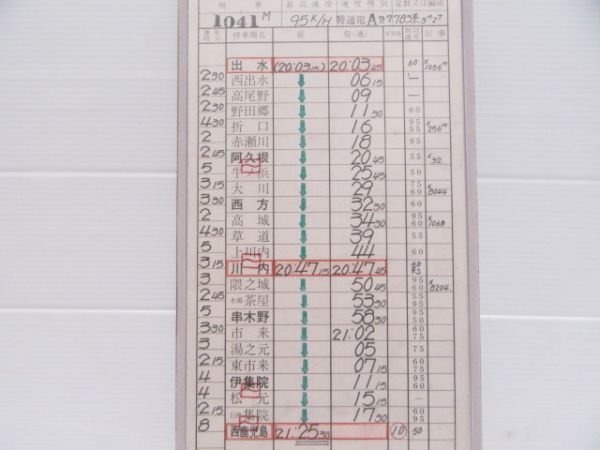 列車 最高速度 速度種別 定数又は編成
1041M 95K/H 特通電A27 783系
運転時分 停車場名 着 発(通) 着発線 制限速度 記事
出水 (20:03 15) 20:03 45 60
2 30 西出水 ↓ 06 15 —
2 45 高尾野 ↓ 09 —
2 30 野田郷 ↓ 11 30 60
4 30 折口 ↓ 16 95 55
2 赤瀬川 ↓ 18 95
2 45 阿久根 ↓ 20 45 55 ×32
5 牛ノ浜 ↓ 25 45 60
3 15 大川 ↓ 29 75 60 ×8044
3 30 西方 ↓ 32 30 60
2 高城 ↓ 34 30 95 60 ×1068
4 30 草道 ↓ 39 55
5 上川内 ↓ 44 60
3 15 川内 20:47 15 20:47 45
3 隈之城 ↓ 50 45 ×8204
2 45 木場茶屋 ↓ 53 30 95 55
5 串木野 ↓ 58 30 60
3 30 市来 ↓ 21:02 60 75
3 湯之元 ↓ 05 75
2 15 東市来 ↓ 07 15 60 75
4 伊集院 ↓ 11 15 95 60
4 松元 ↓ 15 15 —
2 15 上伊集院 ↓ 17 30 60 95
8 西鹿児島 21:25 30 (10) 50